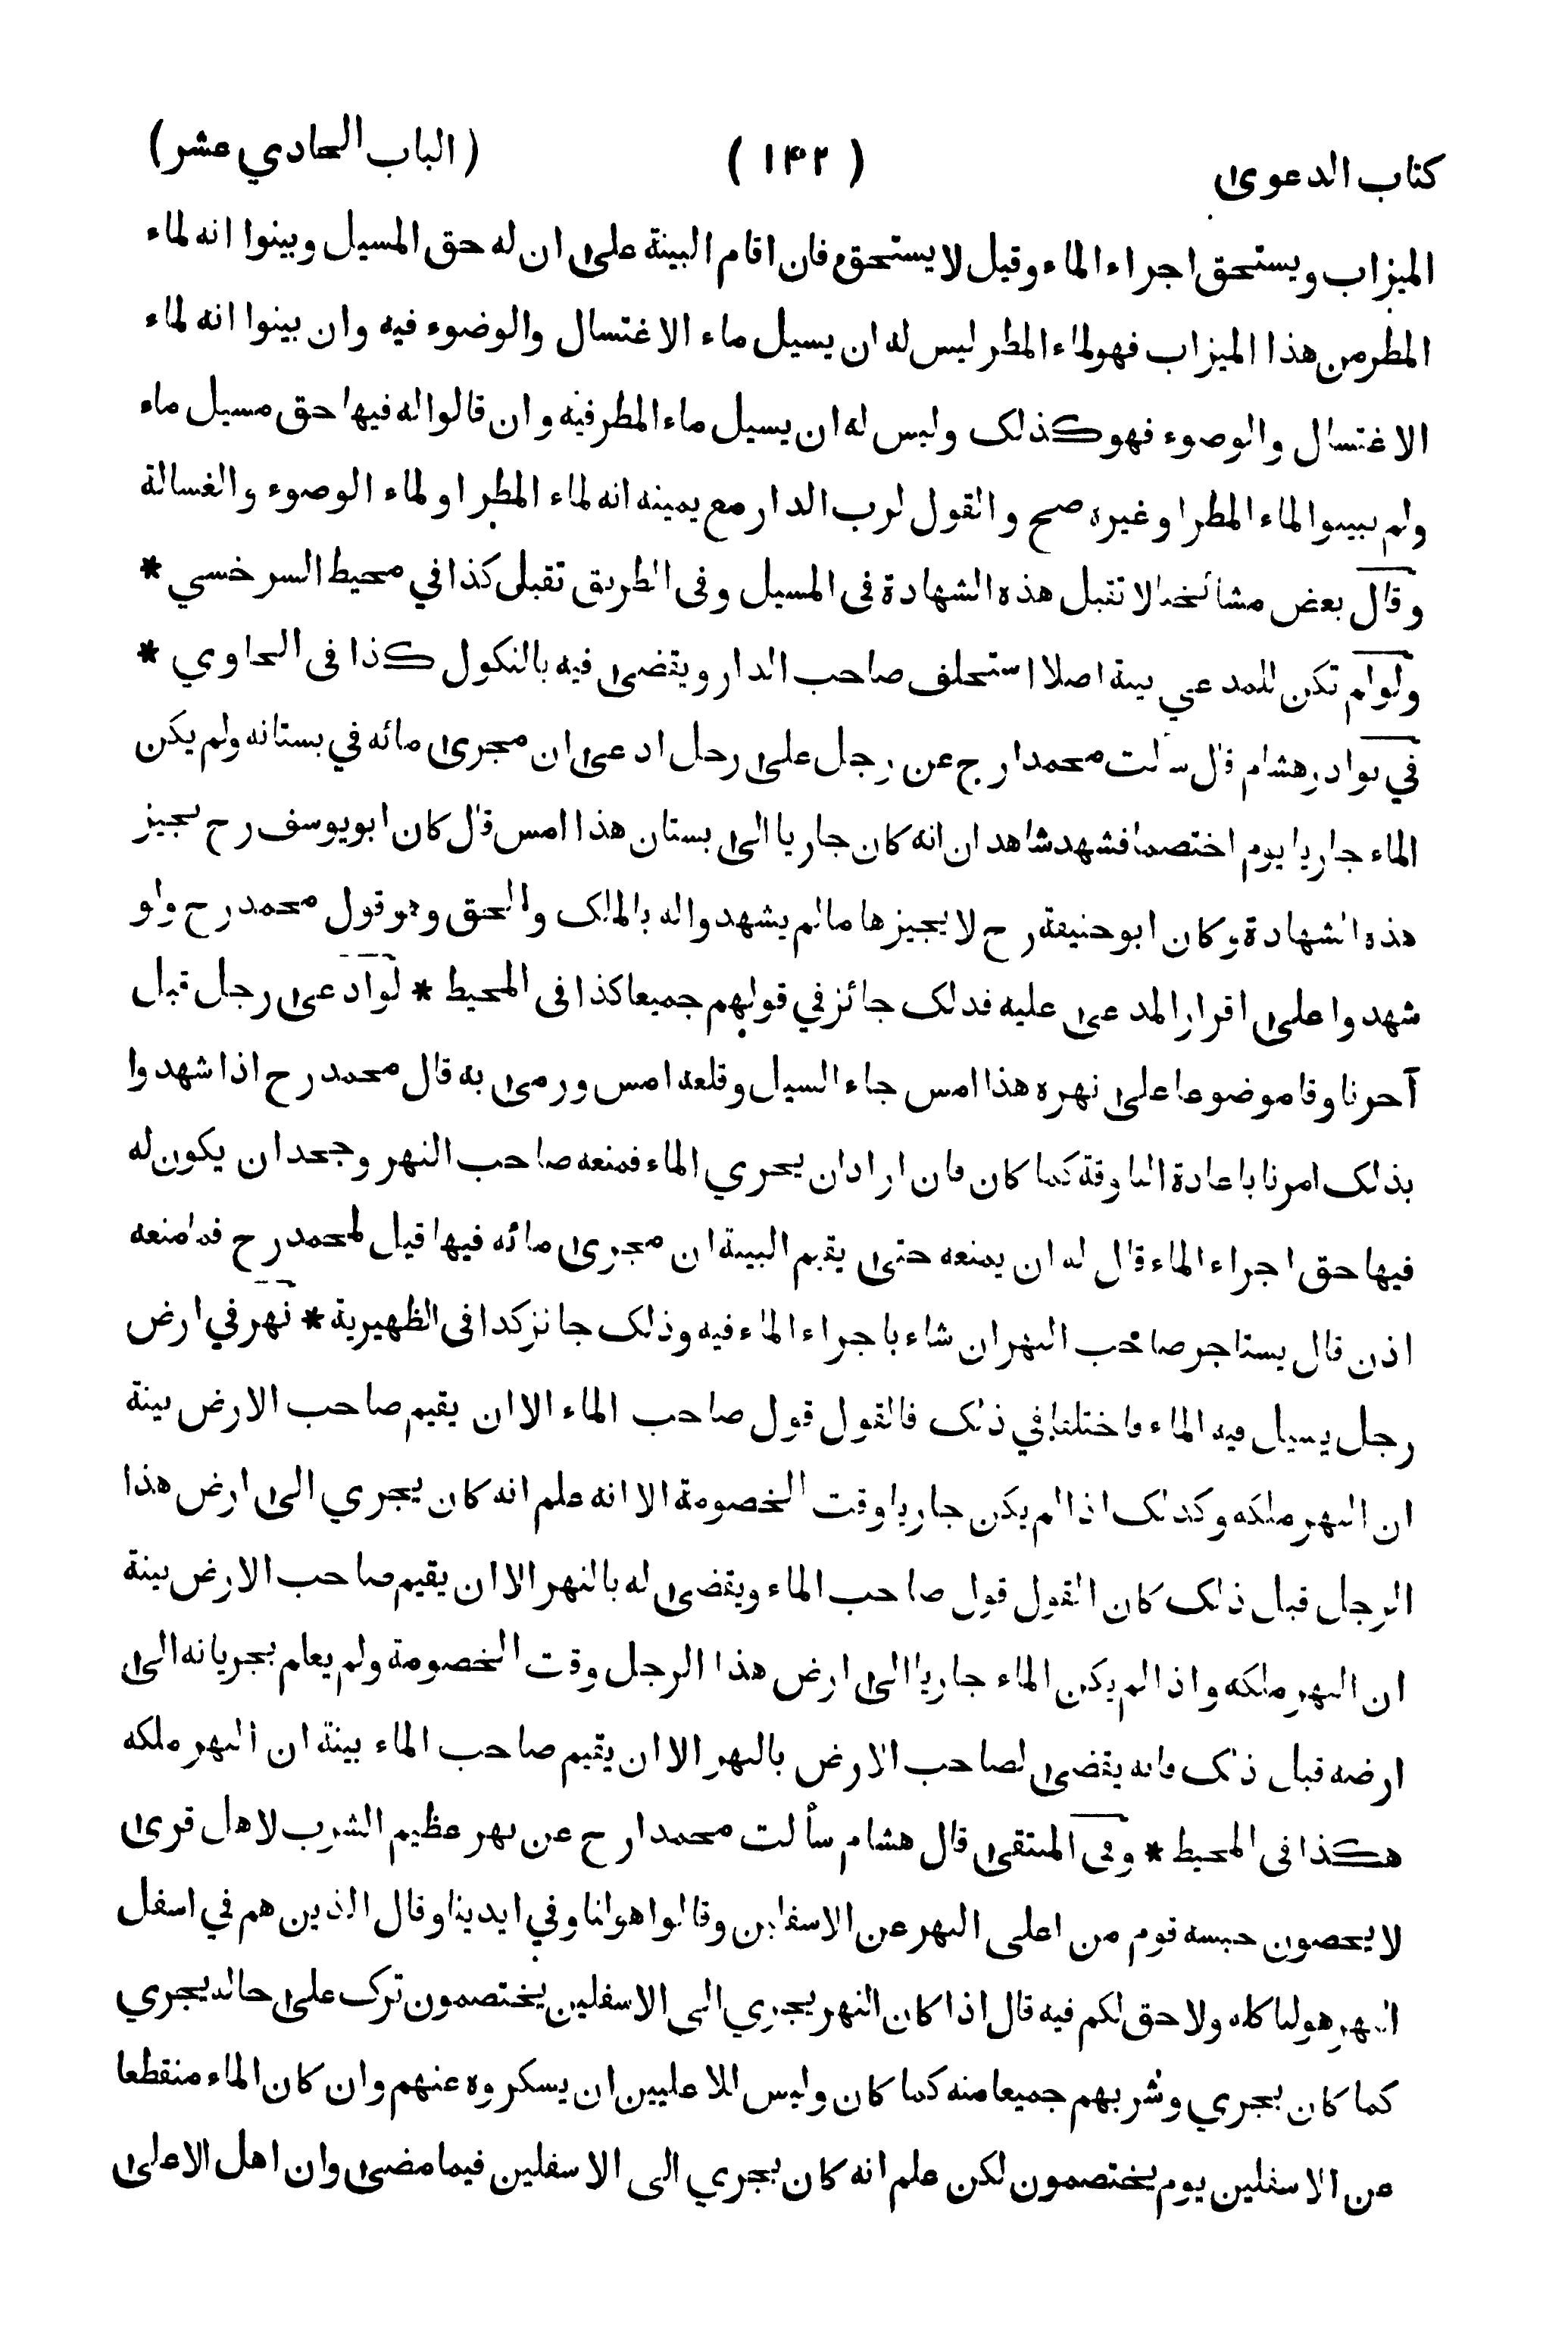 كتاب الدعوى (١۴٢) (الباب الحادي عشر)
الميزاب ويستحق اجراء الماء وقيل لا يستحق فان اقام البينة على ان له حق المسيل وبينوا انه لماء
المطر من هذا الميزاب فهو لماء المطر ليس له ان يسيل ماء الاغتسال والوضوء فيه وان بينوا انه لماء
الاغتسال والوضوء فهو كذلک وليس له ان يسيل ماء المطر فيه وان قالوا له فيها حق مسيل ماء
ولم يبينوا لماء المطر او غيره صح والقول لرب الدار مع يمينه انه لماء المطر او لماء الوضوء والغسالة
وقال بعض مشائخنا لا تقبل هذه الشهادة فى المسيل وفى الطريق تقبل كذا في محيط السرخسي *
ولو لم تكن للمدعي بينة اصلا استحلف صاحب الدار ويقضى فيه بالنكول كذا فى الحاوي *
في نوادر هشام قال سألت محمدا رح عن رجل على رجل ادعى ان مجرى مائه في بستانه ولم يكن
الماء جاريا يوم اختصما فشهد شاهدان انه كان جاريا الى بستان هذا امس قال كان ابويوسف رح يجيز
هذه الشهادة وكان ابو حنيفة رح لا يجيزها مالم يشهدوا له بالملک والحق وهو قول محمد رح ولو
شهدوا على اقرار المدعى عليه فذلک جائز في قولهم جميعا كذا فى المحيط * لو ادعى رجل قبل
آخر ناوقا موضوعا على نهره هذا امس جاء السيل وقلعه امس ورمى به قال محمد رح اذا شهدوا
بذلک امرنا باعادة الناوقة كما كان فان اراد ان يجري الماء فمنعه صاحب النهر وجحد ان يكون له
فيها حق اجراء الماء قال له ان يمنعه حتى يقيم البينة ان مجرى مائه فيها قيل لمحمد رح فما منعه
اذن قال يستاجر صاحب النهر ان شاء باجراء الماء فيه وذلک جائز كذا فى الظهيرية * نهر في ارض
رجل يسيل فيه الماء فاختلفا في ذلک فالقول قول صاحب الماء الا ان يقيم صاحب الارض بينة
ان النهر ملكه وكذلک اذا لم يكن جاريا وقت الخصومة الا انه علم انه كان يجري الى ارض هذا
الرجل قبل ذلک كان القول قول صاحب الماء ويقضى له بالنهر الا ان يقيم صاحب الارض بينة
ان النهر ملكه واذا لم يكن الماء جاريا الى ارض هذا الرجل وقت الخصومة ولم يعلم بجريانه الى
ارضه قبل ذلک فانه يقضى لصاحب الارض بالنهر الا ان يقيم صاحب الماء بينة ان النهر ملكه
هكذا فى المحيط * وفى المنتقى قال هشام سألت محمدا رح عن نهر عظيم الشرب لاهل قرى
لا يحصون حبسه قوم من اعلى النهر عن الاسفلين وقالوا هو لنا وفي ايدينا وقال الذين هم في اسفل
النهر هو لنا كله ولا حق لكم فيه قال اذا كان النهر يجري الى الاسفلين يختصمون ترک على حاله يجري
كما كان يجري وشربهم جميعا منه كما كان وليس للاعليين ان يسكروه عنهم وان كان الماء منقطعا
عن الاسفلين يوم يختصمون لكن علم انه كان يجري الى الاسفلين فيما مضى وان اهل الاعلى